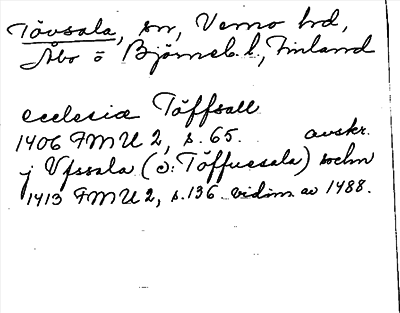 Tövsala, sn, Vemo hd,
Åbo o Björneb. l., Finland
ecclesiæ Töffsall
1406 FMU 2, s. 65. avskr.
j Vfssala (ɔ: Töffuesala) sochn
1413 FMU 2, s. 136. vidim. av 1488.